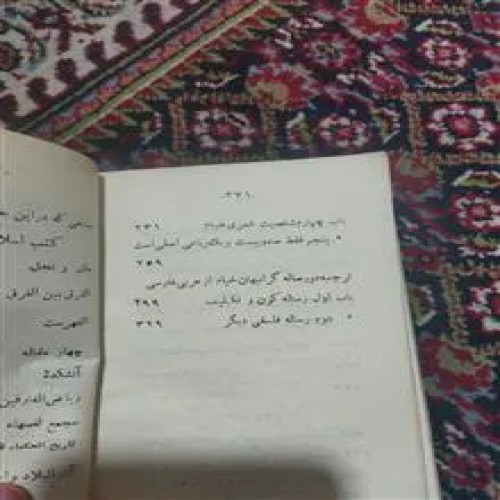 ۰۳۷۱۰
باب چهارم شخصیت شعری خیام ۲۳۱
« پنجم فقط صدو بیست و یک رباعی اصلی است
۲۵۹
ترجمه دو رساله گرانبهای خیام از عربی بفارسی
باب اول رساله کون و تکلیف ۲۹۹
« دوم رساله فلسفی دیگر ۳۲۹
که در این
کتب
ملل و نحل
الفرق بین الفرق
الفهرست
چهار مقاله
آتشکده
ریاض العارفین
مجمع الفصحاء
تاریخ الحکماء